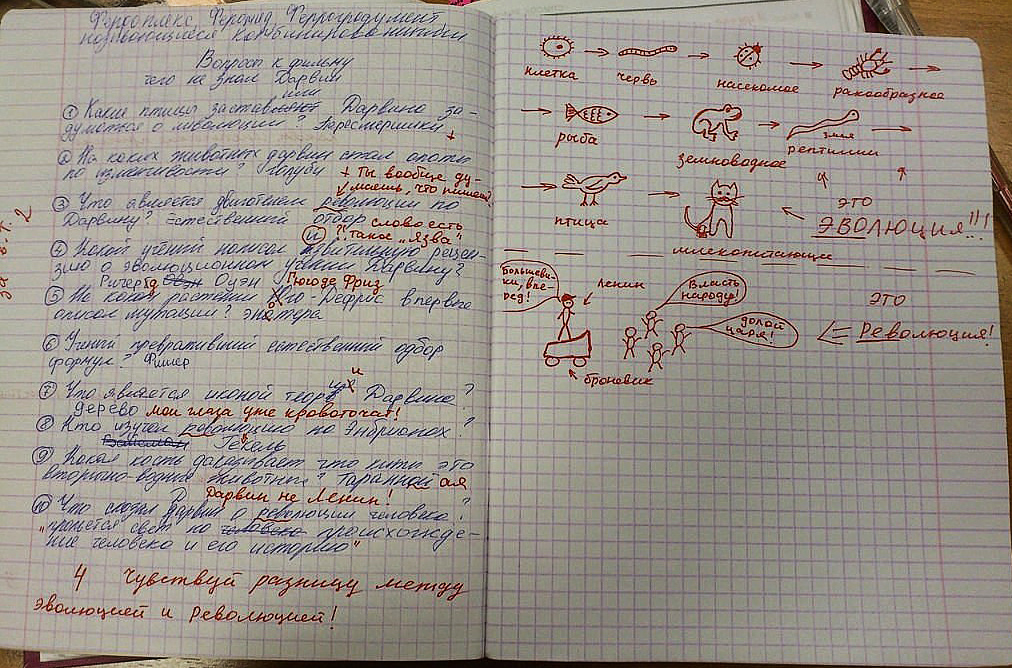 Вопросы к фильму
чего не знал Дарвин
или
① Какие птицы заставляют Дарвина за-
думаться о эволюции? Пересмешники +
② На каких животных дарвин стал опыты
по изменчивости голуби + Ты вообще ду-
маешь, что пишешь?
③ Что является двигателем революции по
Дарвину? естественный отбор
слово есть
? такое „Язва"
④ Какой учёный написал язвительную рецен-
зию о эволюционном учении Дарвину?
Ричерд Оуэн Гюгоде Фриз
⑤ На каком растении Юго-Дефрис впервые
описал мутации? энотера
⑥ Учёный превративший естественный отбор
формул? Фишер
и
⑦ Что является иконой теории Дарвина?
дерево мои глаза уже кровоточат!
⑧ Кто изучал революцию по Энбрионах?
Гекель
⑨ Какая кость доказывает что киты это
вторично-водные животные? Таранная ая
Дарвин не Ленин!
⑩ Что сказал дарвин о революции человека?
"прольётся свет на человека происхожде-
ние человека и его историю"
4 Чувствуй разницу между
эволюцией и Революцией!
клетка червь насекомое ракообразное
рыба земноводное змия рептилии
птица млекопитающие
ЭТО
ЭВОЛЮЦИЯ!!!
Большеви-
ки, впе-
ред!
ленин
Власть
народу!
долой
царя!
броневик
ЭТО
Революция!